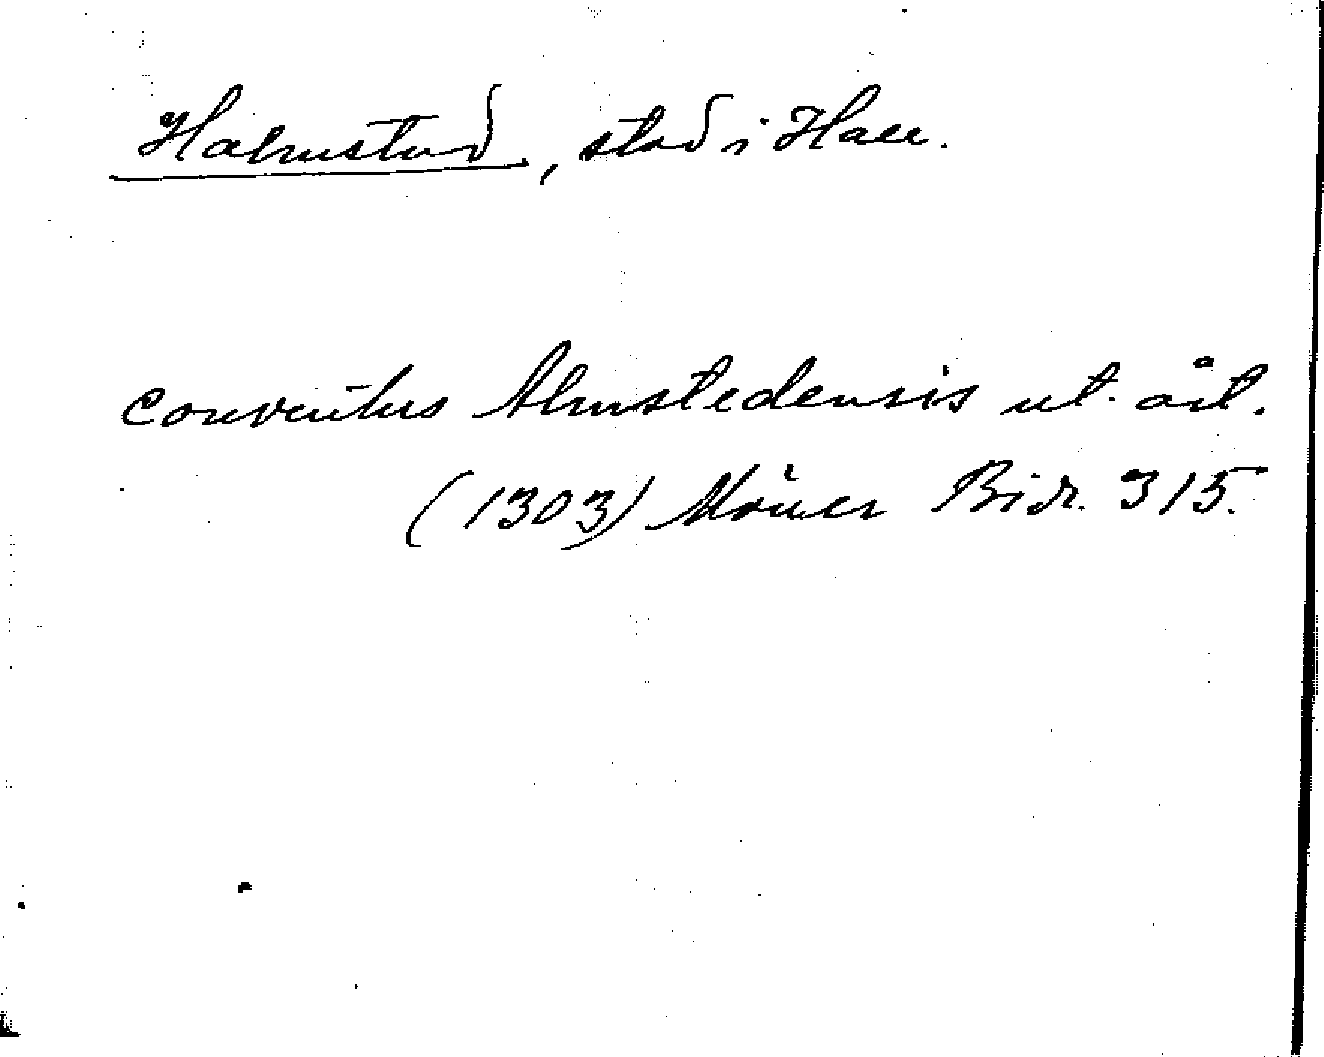 Halmstad, stad i Hall.
conventus Almstedensis ut. åt.
(1303) Mörner Bidr. 315.